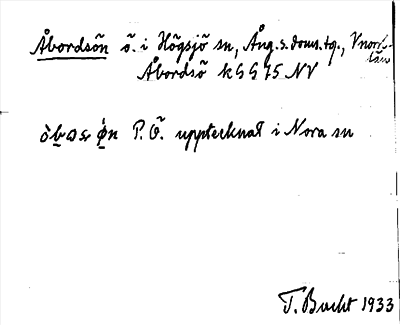 Åbordsön ö. i Högsjö sn, Ång. s. doms. tg., Vnorrl. län
Åbordsö k G G 75 NV
P. Ö. upptecknat i Nora sn
T. Bucht 1933